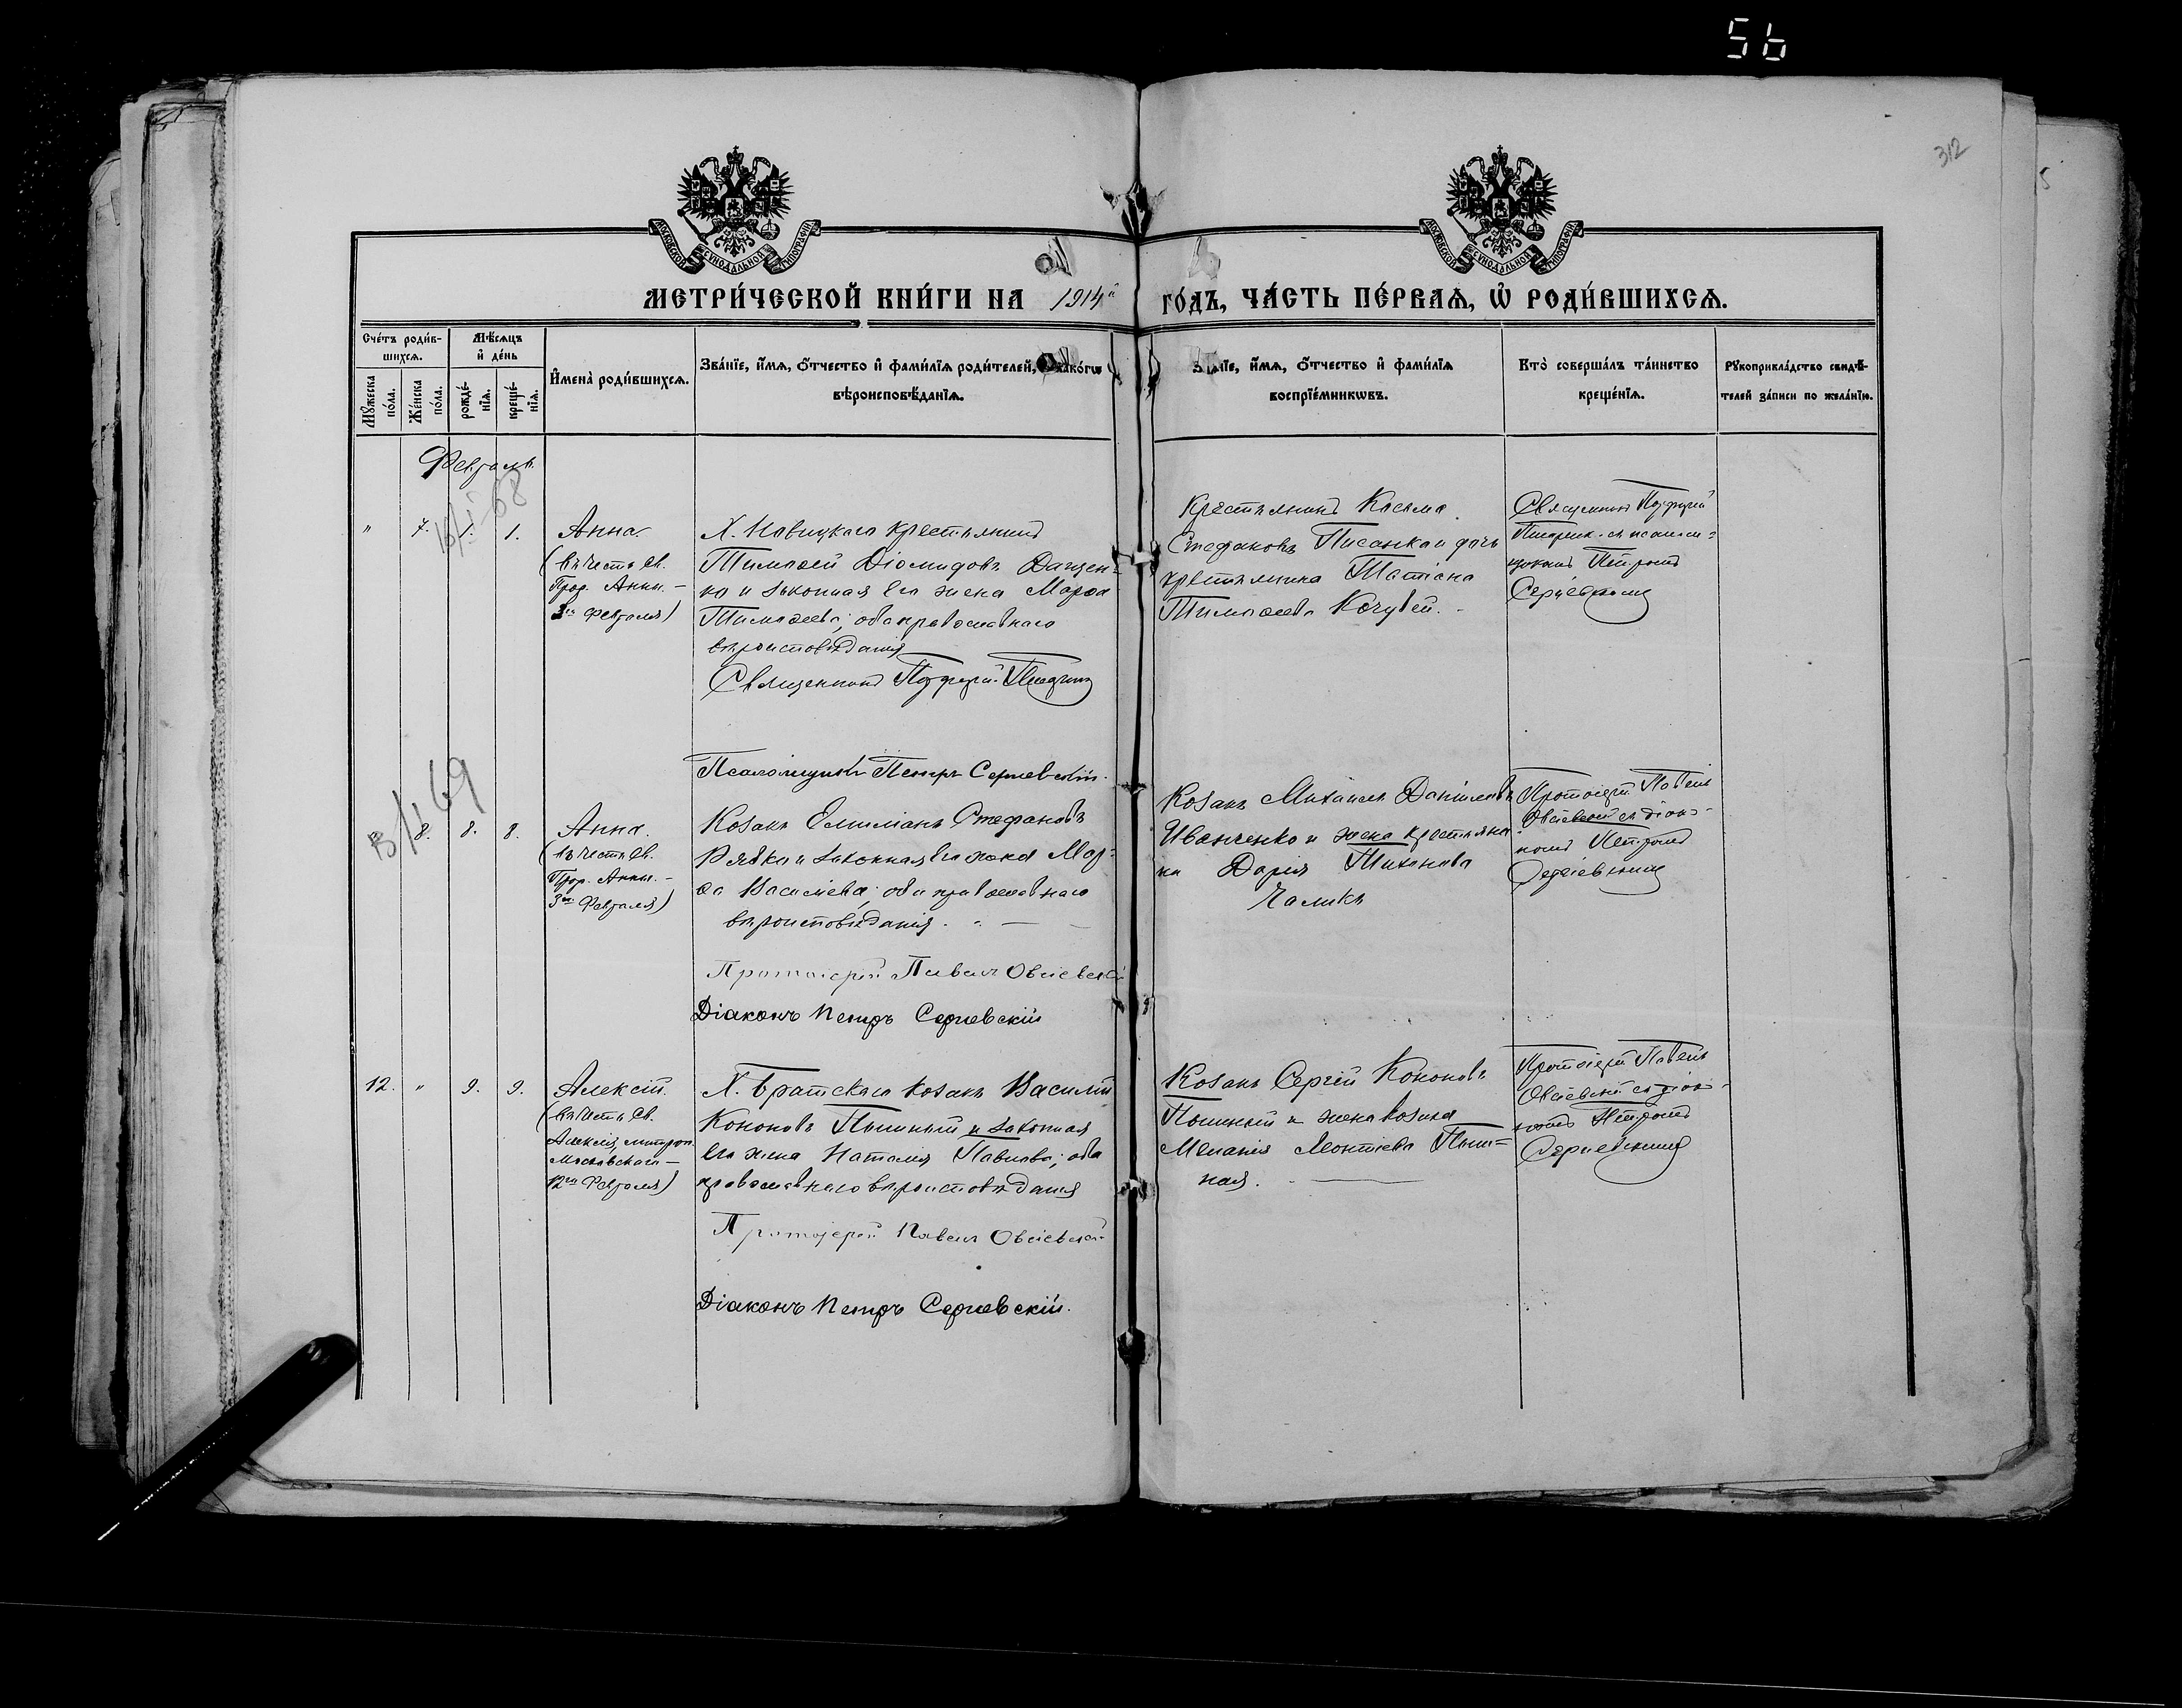 56
312
5
МОСКОВСКОЙ СѴНОДАЛЬНОЙ ТИПОГРАФІИ
МОСКОВСКОЙ СѴНОДАЛЬНОЙ ТИПОГРАФІИ
МЕТРИ́ЧЕСКОЙ КНИ́ГИ НА 1914й ГО́ДЪ, ЧА́СТЬ ПЕ́РВАѦ, Ѡ҆ РОДИ́ВШИХСѦ.
Сче́тъ роди́в-
шихсѧ.
Мѣ́сѧцъ
и҆ де́нь
Мꙋ́жеска
по́ла.
Же́нска
по́ла.
рожде́-
нїѧ.
креще́-
нїѧ.
И҆мена̀ роди́вшихсѧ.
Зва́нїе, и҆́мѧ, ѻ҆́тчество и҆ фами́лїѧ роди́телей, и҆ како́гѡ
вѣроисповѣ́данїѧ.
Зва́нїе, и҆́мѧ, ѻ҆́тчество и҆ фами́лїѧ
воспрїе́мникѡвъ.
Кто̀ соверша́лъ та́инство
креще́нїѧ.
Рꙋкоприкла́дство свидѣ́-
телей за́писи по жела́нїю.
Февраль
" 7. 1. 1.
Анна.
(въ честь св.
Прор. Анны. –
3го Февраля)
Х. Новицкаго крестьянинъ
Тимоѳей Діомидовъ Дацен-
ко и законная его жена Марѳа
Тимоѳеева; оба православнаго
вѣроисповѣданія
Священникъ Порфирій
Псаломщикъ Петръ Сергіевскій.
Крестьянинъ Косьма
Стефановъ Писанка и дочь
крестьянина Татіана
Тимоѳеева Кочубей.
Священникъ Порфирій
съ псалом-
щикомъ Петромъ
Сергіевскимъ
8. 8. 8.
Анна.
(въ честь св.
Прор. Анны. –
3го Февраля)
Козакъ Емиліанъ Стефановъ
Рябко и законная его жена Мар-
ѳа Василіева; оба православнаго
вѣроисповѣданія.
Протоіерей Павелъ Овсіевскій
Діаконъ Петръ Сергіевскій
Козакъ Михаилъ Даніиловъ
Иванченко и жена крестьяни-
на Дарія Тихонова
Чаликъ
Протоіерей Павелъ
Овсіевскій съ діа-
кономъ Петромъ
Сергіевскимъ
12. " 9. 9.
Алексій.
(въ честь св.
Алексія, митроп.
Московскаго –
12го Февраля)
Х. Братскаго козакъ Василій
Кононовъ Пышный и законная
его жена Наталія Павлова; оба
православнаго вѣроисповѣданія
Протоіерей Павелъ Овсіевскій
Діаконъ Петръ Сергіевскій.
Козакъ Сергій Кононовъ
Пышный и жена козака
Меланія Леонтіева Пыш-
ная.
Протоіерей Павелъ
Овсіевскій съ діа-
кономъ Петромъ
Сергіевскимъ